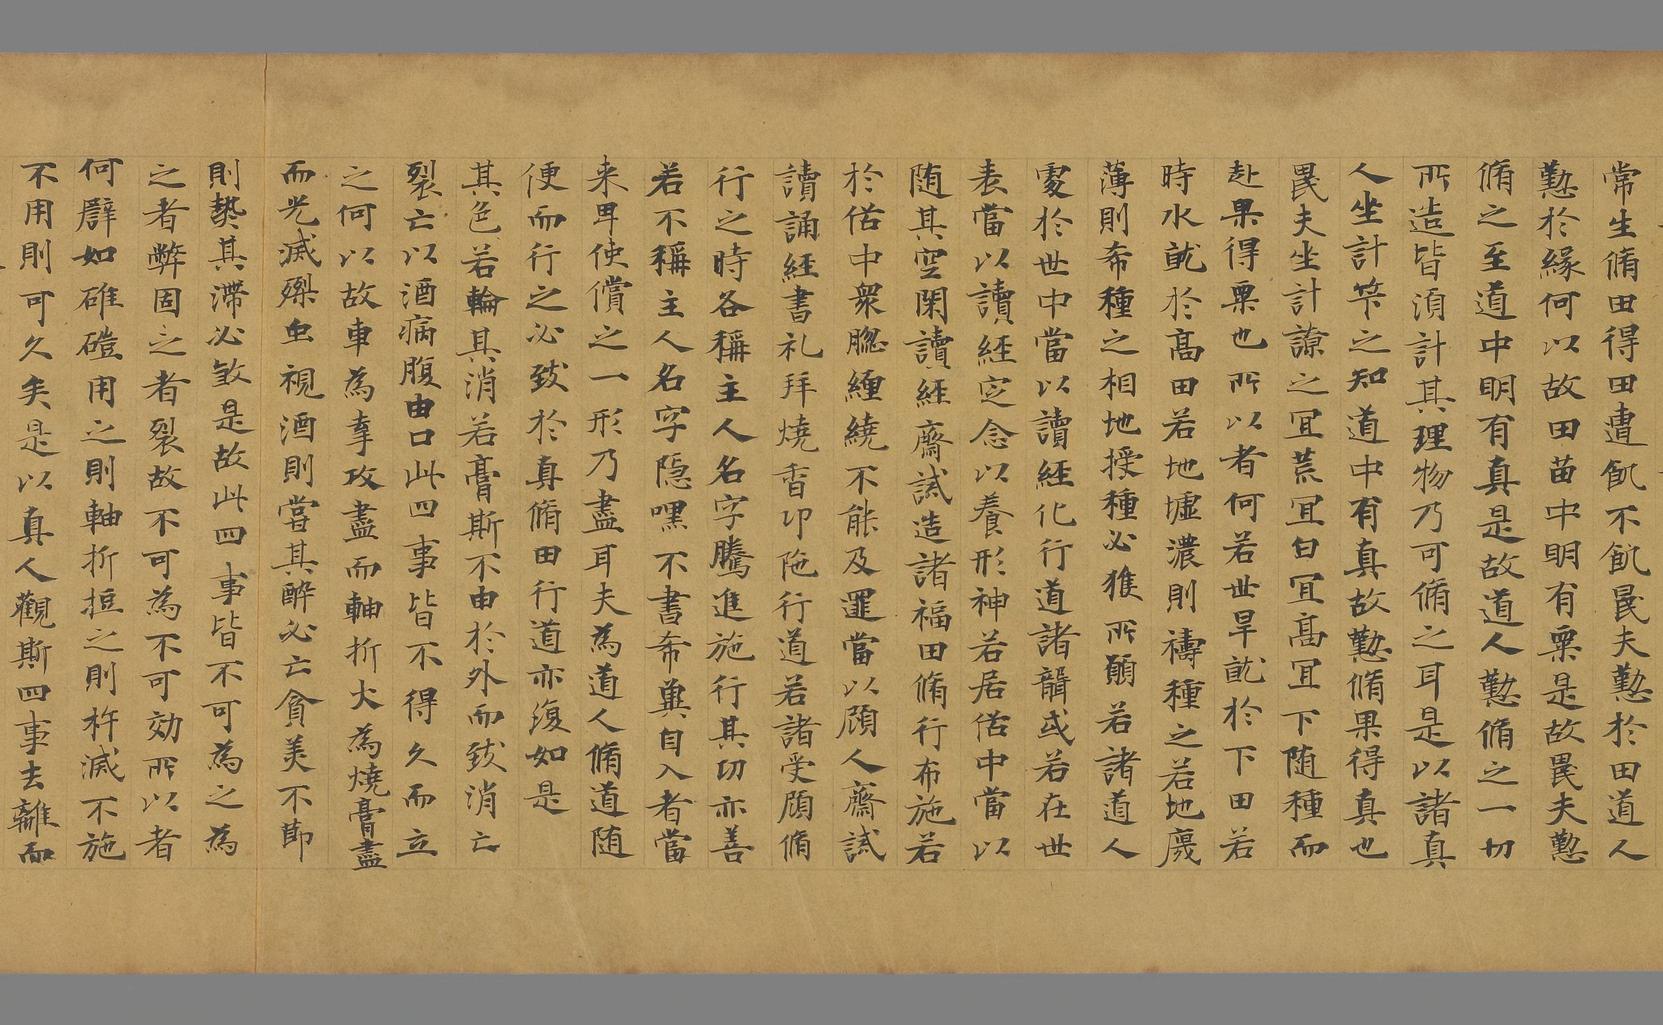 常生脩田得田遭飢不飢㬰夫懃於田道人
懃於緣何以故田苗中明有粟是故㬰夫懃
脩之至道中明有真是故道人懃脩之一切
所造皆須計其理物乃可脩之耳是以諸真
人坐計竿之知道中有真故懃脩果得真也
㬰夫坐計諒之冝荒冝白冝髙冝下随種而
赴果得粟也所以者何若世旱就於下田若
時水就於髙田若地墟濃則禱種之若地㾱
薄則希種之相地授種必獲所願若諸道人
䖏於世中當以讀經化行道諸聾或若在世
表當以讀經定念以養形神若居俗中當以
随其空閑讀經齋試造諸福田脩行布施若
於俗中衆𦗟纏繞不能及還當以顾人齋試
讀誦經書礼拜燒香叩陁行道若諸受顾脩
行之時各稱主人名字騰進施行其功亦善
若不稱主人名字隐嘿不書希兾自入者當
来畀使償之一形乃盡耳夫為道人脩道随
便而行之必致於真脩田行道亦復如是
其色若輪其消若膏斯不由於外而致消亡
裂亡以酒病腹由口此四事皆不得久而立
之何以故車為牽攻盡而軸折火為燒膏盡
而光滅㷼虫視酒則嘗其醉必亡貪美不節
則𫝑其滯必敓是故此四事皆不可為之為
之者弊固之者裂故不可為不可効所以者
何㡾如碓磑用之則軸折拒之則杵滅不施
不用則可久矣是以真人觀斯四事去離而